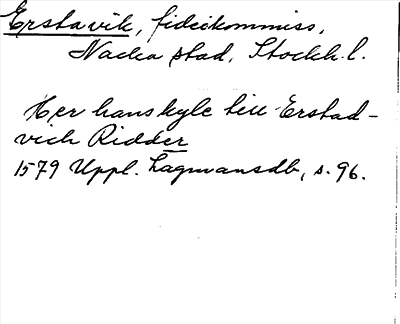 Erstavik, fideikommiss,
Nacka stad, Stockh.l.
Her hans kyle till Erstad-
vich Ridder
1579 Uppl. Lagmansdb, s. 96.